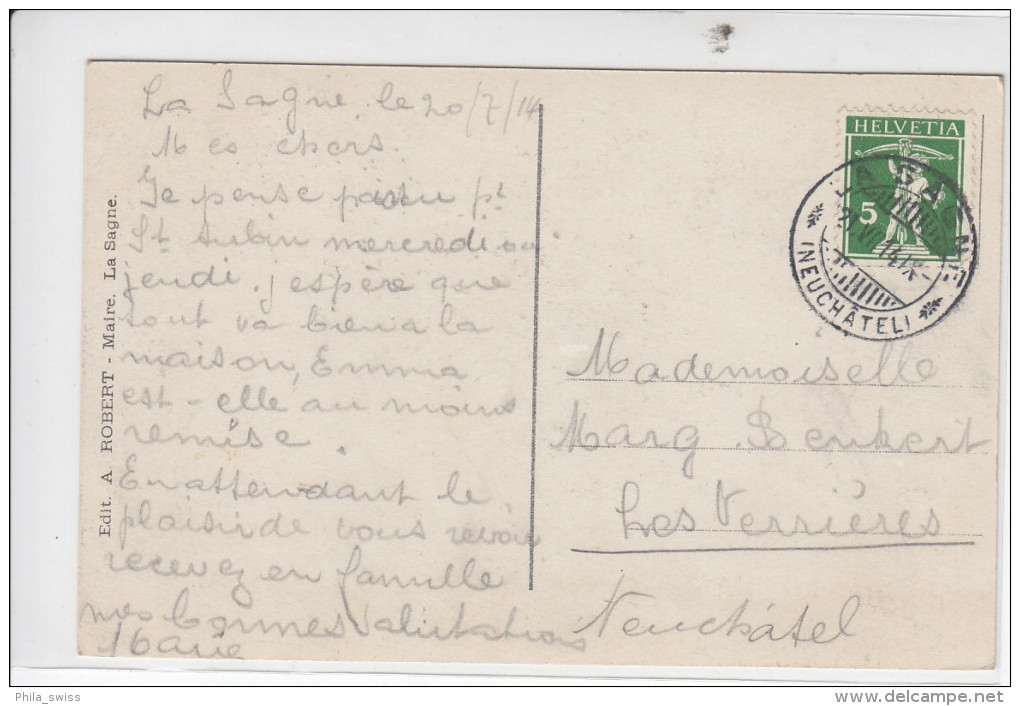 La Sagne, le 20/7/14
Mes chers.
Je pense pt
St Aubin mercredi ou
jeudi. j espère que
tout va bien a la
maison, Emma
est-elle au moins
remise.
En attendant le
plaisir de vous revoir
recevez en famille
mes bonnes salutations
Marie
Edit. A. ROBERT - Maire. La Sagne.
HELVETIA
5
LA SAGNE
(NEUCHÂTEL)
Mademoiselle
Marg. Benkert
Les Verrières
Neuchâtel
Phila_swiss
www.delcampe.net